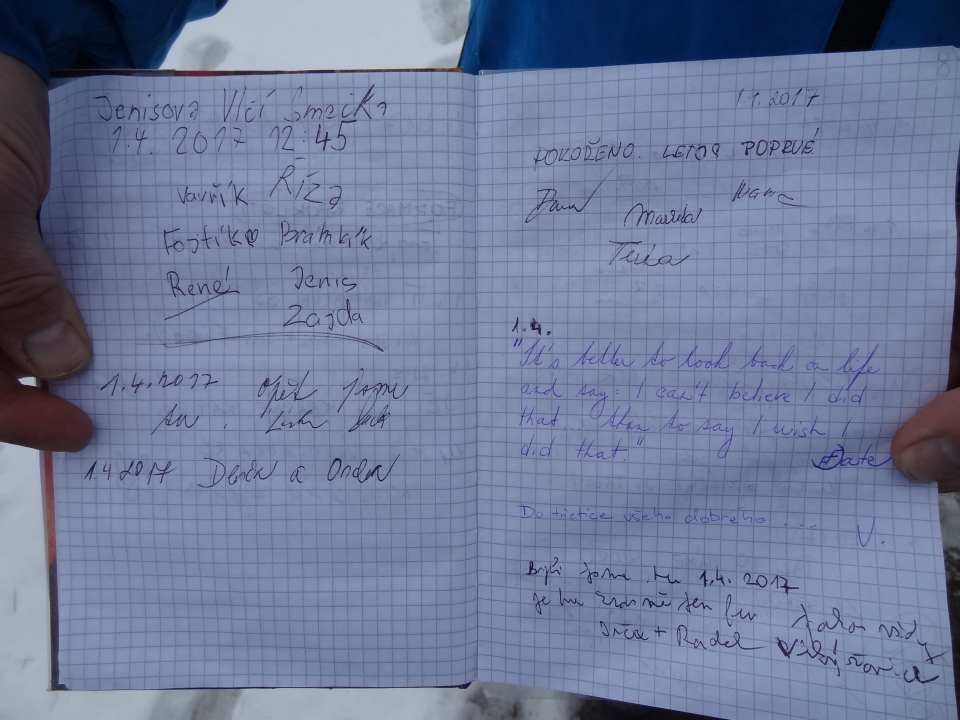 Jenisova Vlčí Smečka
1.4. 2017 12:45
Vavřík Říza
Fojtík Bramík
René Jenis
Zajda
1.4.2017 Opět jsme
tu.
1.4 2017 a
1.1.2017
POKOŘENO LETOS POPRVÉ
Dana
Terka
1.4.
"It's better to look back on life
and say: I can't believe I did
that. than to say I wish I
did that."
Do třetice všeho dobrého ... V.
Byli jsme tu 1.4. 2017
je tu jen fu Jako vždy
+ Radek